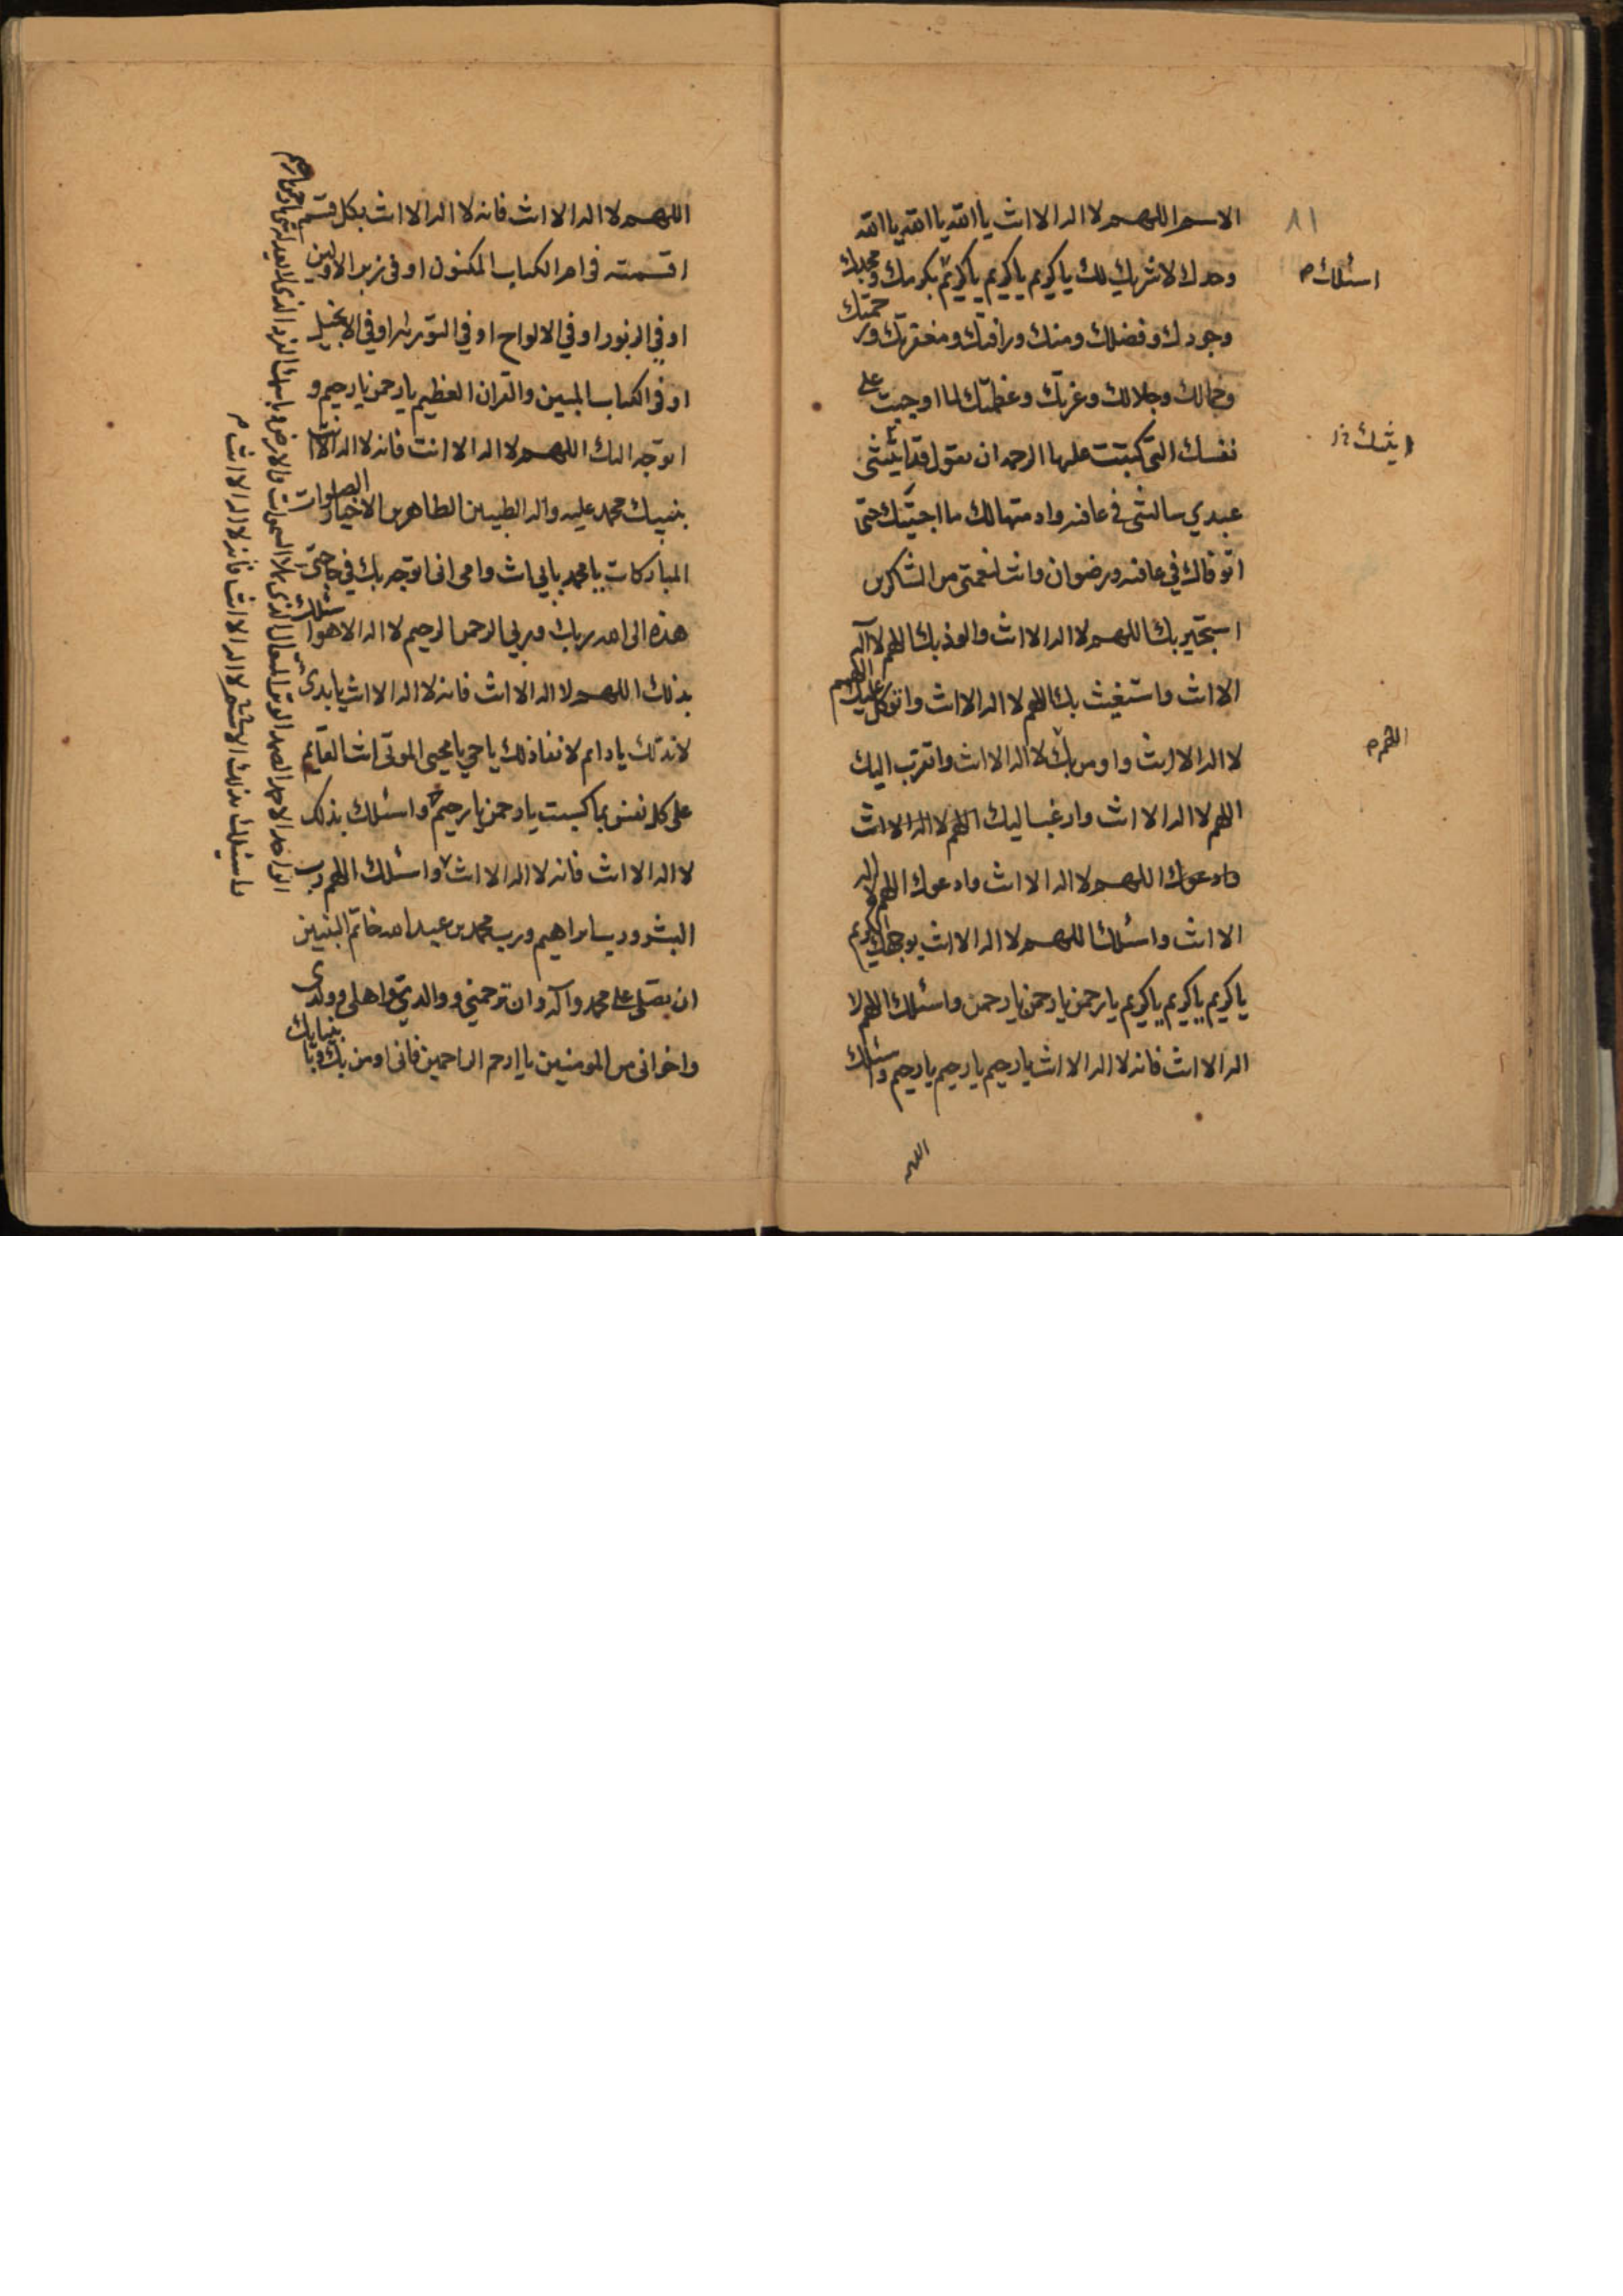 الاسم اللهم لا اله الا انت يا الله يا الله يا الله
٨١
وحدك لا شريك لك يا كريم يا كريم يا كريم بكرمك ومجدك
اسئلك م
وجودك وفضلك ومنك ورافتك ومغفرتك ورحمتك
وجمالك وجلالك وعزتك وعظمتك لما اوجبت على
نفسك التي كتبت عليها الرحمة ان تقول قد اتيتك
عبدي سالتني في عافية وادمتها لك ما احييتك حتى
اتوفاك في عافية ورضوان وانت لنعمتي من الشاكرين
استجير بك اللهم لا اله الا انت والوذ بك اللهم لا اله
الا انت واستغيث بك اللهم لا اله الا انت واتوكل عليك اللهم
لا اله الا انت واومن بك لا اله الا انت واتقرب اليك
اللهم م
اللهم لا اله الا انت وارغب اليك اللهم لا اله الا انت
وادعوك اللهم لا اله الا انت وادعوك اللهم لا اله
الا انت واسئلك اللهم لا اله الا انت بوجهك الكريم
يا كريم يا كريم يا كريم يا رحمن يا رحمن يا رحمن واسئلك اللهم لا
اله الا انت فانه لا اله الا انت يا رحيم يا رحيم يا رحيم واسئلك
اللهم
اللهم لا اله الا انت فانه لا اله الا انت بكل قسم
اقسمته في ام الكتاب المكنون او في زبر الاولين
او في الزبور او في الالواح او في التورية او في الانجيل
او في الكتاب المبين والقران العظيم يا رحمن يا رحيم و
اتوجه اليك اللهم لا اله الا انت فانه لا اله الا انت
بنبيك محمد عليه واله الطيبين الطاهرين الاخيار الصلوات
المباركات يا محمد بابي انت وامي اني اتوجه بك في حاجتي
هذه الى الله ربك وربي الرحمن الرحيم لا اله الا هو اسئلك
بذلك اللهم لا اله الا انت فانه لا اله الا انت يا بدئ
لا ند لك يا دائم لا نفاد لك يا حي يا محيي الموتى انت القائم
على كل نفس بما كسبت يا رحمن يا رحيم واسئلك بذلك
لا اله الا انت فانه لا اله الا انت واسئلك اللهم رب
البشر ورب ابراهيم ورب محمد بن عبد الله خاتم النبيين
ان تصلى على محمد وآله وان ترحمني ووالدي واهلى وولدى
واخوانى من المومنين يا ارحم الراحمين فانى اومن بك وبانبيائك
واسئلك بذلك الاسم لا اله الا انت فانه لا اله الا انت م